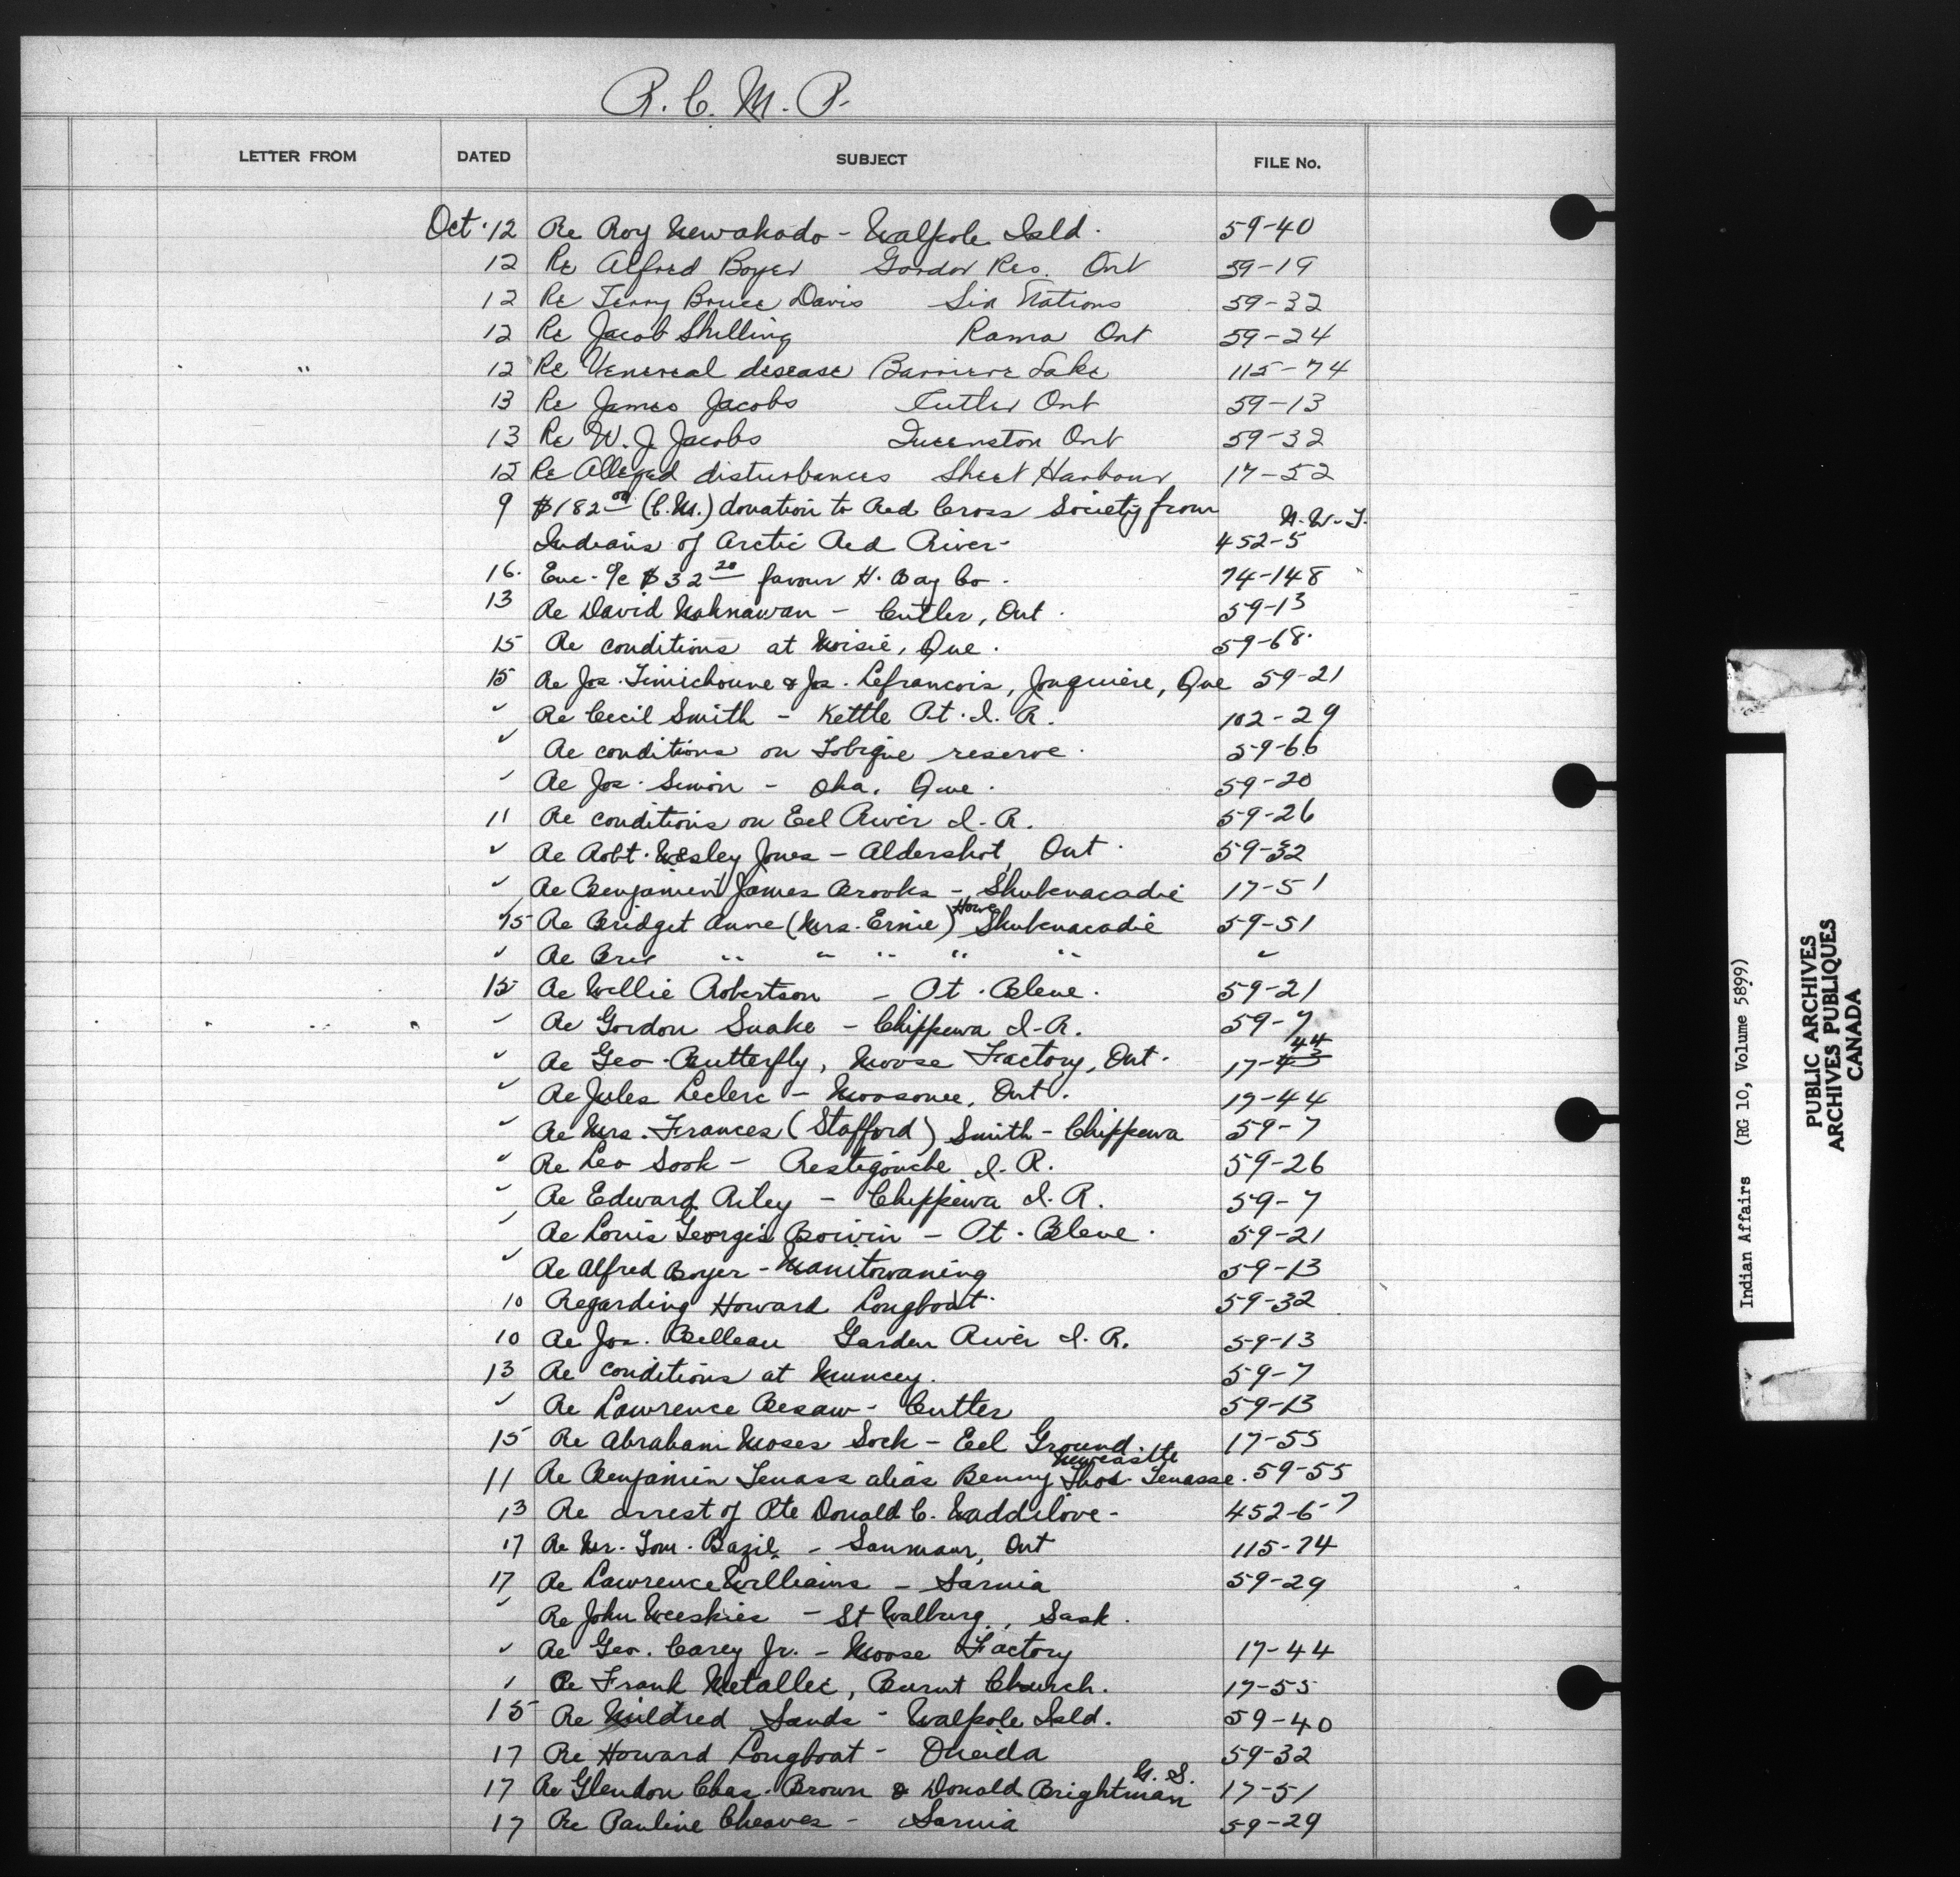 R. C. M. P.
LETTER FROM DATED SUBJECT FILE No.
Oct. 12 Re Roy Newahado - Walpole Isld. 59-40
12 Re Alfred Boyer Garden Res. Ont 59-19
12 Re Terry Bruce Davis Six Nations 59-32
12 Re Jacob Shilling Rama Ont 59-24
" 12 Re Venereal disease Barriere Lake 115-74
13 Re James Jacobs Cutler Ont 59-13
13 Re W. J. Jacobs Queenston Ont 59-32
12 Re Alleged disturbances Sheet Harbour 17-52
9 $182.00 (C.M.) donation to Red Cross Society from N.W.T.
Indians of Arctic Red River - 452-5
16. Enc. o/c $32.20 favour H. Bay Co. 74-148
13 Re David Nahnawan - Cutler, Ont. 59-13
15 Re conditions at Moisie, Que. 59-68.
15 Re Jos. Simichoune & Jos. Lefrancois, Jonquiere, Que 59-21
" Re Cecil Smith - Kettle Pt. I. R. 102-29
" Re conditions on Tobique reserve. 59-66
" Re Jos. Simon - Oka. Que. 59-20
11 Re conditions on Eel River I. R. 59-26
" Re Robt. Wesley Jones - Aldershot, Ont. 59-32
" Re Benjamin James Brooks - Shubenacadie 17-51
15 Re Bridget Anne (Mrs. Ernie) Howe Shubenacadie 59-51
" Re " " " " " "
15 Re Willie Robertson - Pt. Bleue. 59-21
" Re Gordon Snake - Chippewa I. R. 59-7
" Re Geo. Butterfly, Moose Factory, Ont. 17-43 44
" Re Jules Leclerc - Moosonee, Ont. 17-44
" Re Mrs. Frances (Stafford) Smith - Chippewa 59-7
" Re Leo Sook - Restigouche I. R. 59-26
" Re Edward Riley - Chippewa I. R. 59-7
" Re Louis Georges Boivin - Pt. Bleue. 59-21
" Re Alfred Boyer - Manitowaning 59-13
10 Regarding Howard Longboat. 59-32
10 Re Jos. Belleau Garden River I. R. 59-13
13 Re conditions at Muncey. 59-7
" Re Lawrence Besaw - Cutler 59-13
15 Re Abraham Moses Sock - Eel Ground. 17-55
Newcastle
11 Re Benjamin Tenass alias Benny Thos. Tenasse. 59-55
13 Re arrest of Pte Donald C. Waddilove - 452-6-7
17 Re Mr. Tom. Bazil - Sanmaur, Ont 115-74
17 Re Lawrence Williams - Sarnia 59-29
" Re John Weeskies - St Walburg, Sask.
" Re Geo. Carey Jr. - Moose Factory 17-44
" Re Frank Metallic, Burnt Church. 17-55
15 Re Mildred Sands - Walpole Isld. 59-40
17 Re Howard Longboat - Oneida 59-32
17 Re Glendon Chas. Brown & Donald Brightman N. S. 17-51
17 Re Pauline Cheaves - Sarnia 59-29
Indian Affairs (RG 10, Volume 5899)
PUBLIC ARCHIVES
ARCHIVES PUBLIQUES
CANADA